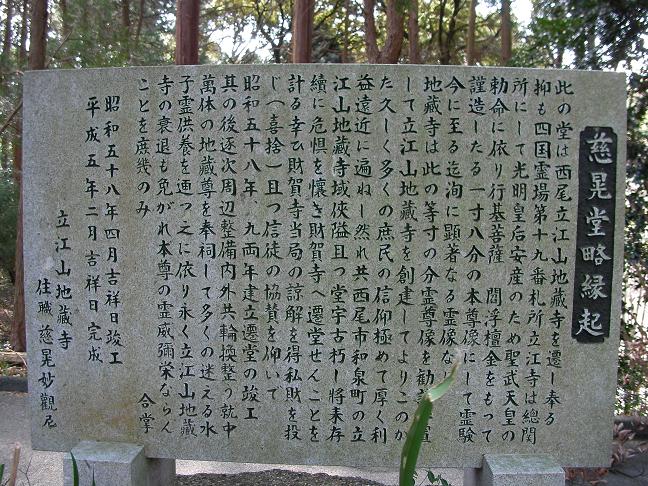 慈晃堂略縁起
此の堂は西尾立江山地蔵寺を遷し奉る
抑も四国霊場第十九番札所立江寺は総関
所にして光明皇后安産のため聖武天皇の
勅命に依り行基菩薩 閻浮檀金をもって
謹造したる一寸八分の本尊像にして霊験
今に至る迄洵に顕著なる霊像な
地蔵寺は此の等寸の分霊尊像を勧 置
して立江山地蔵寺を創建してよりこのか
た久しく多くの庶民の信仰極めて厚く利
益遠近に遍ねし然れ共西尾市和泉町の立
江山地蔵寺域狹隘且つ堂宇古朽し将来存
続に危惧を懐き財賀寺へ遷堂せんことを
計る幸ひ財賀寺当局の諒解を得私財を投
じ(喜捨)且つ信徒の協賛を仰いで
昭和五十八年、九両年建立遷堂の竣工
其の後逐次周辺整備内外共輪換整う就中
萬体の地蔵尊を奉祠して多くの迷える水
子霊供養を通つ之に依り永く立江山地蔵
寺の衰退も免がれ本尊の霊威彌栄ならん
ことを庶幾のみ 合掌
昭和五十八年四月吉祥日竣工
平成五年二月吉祥日完成
立江山地蔵寺
住職 慈晃妙觀尼